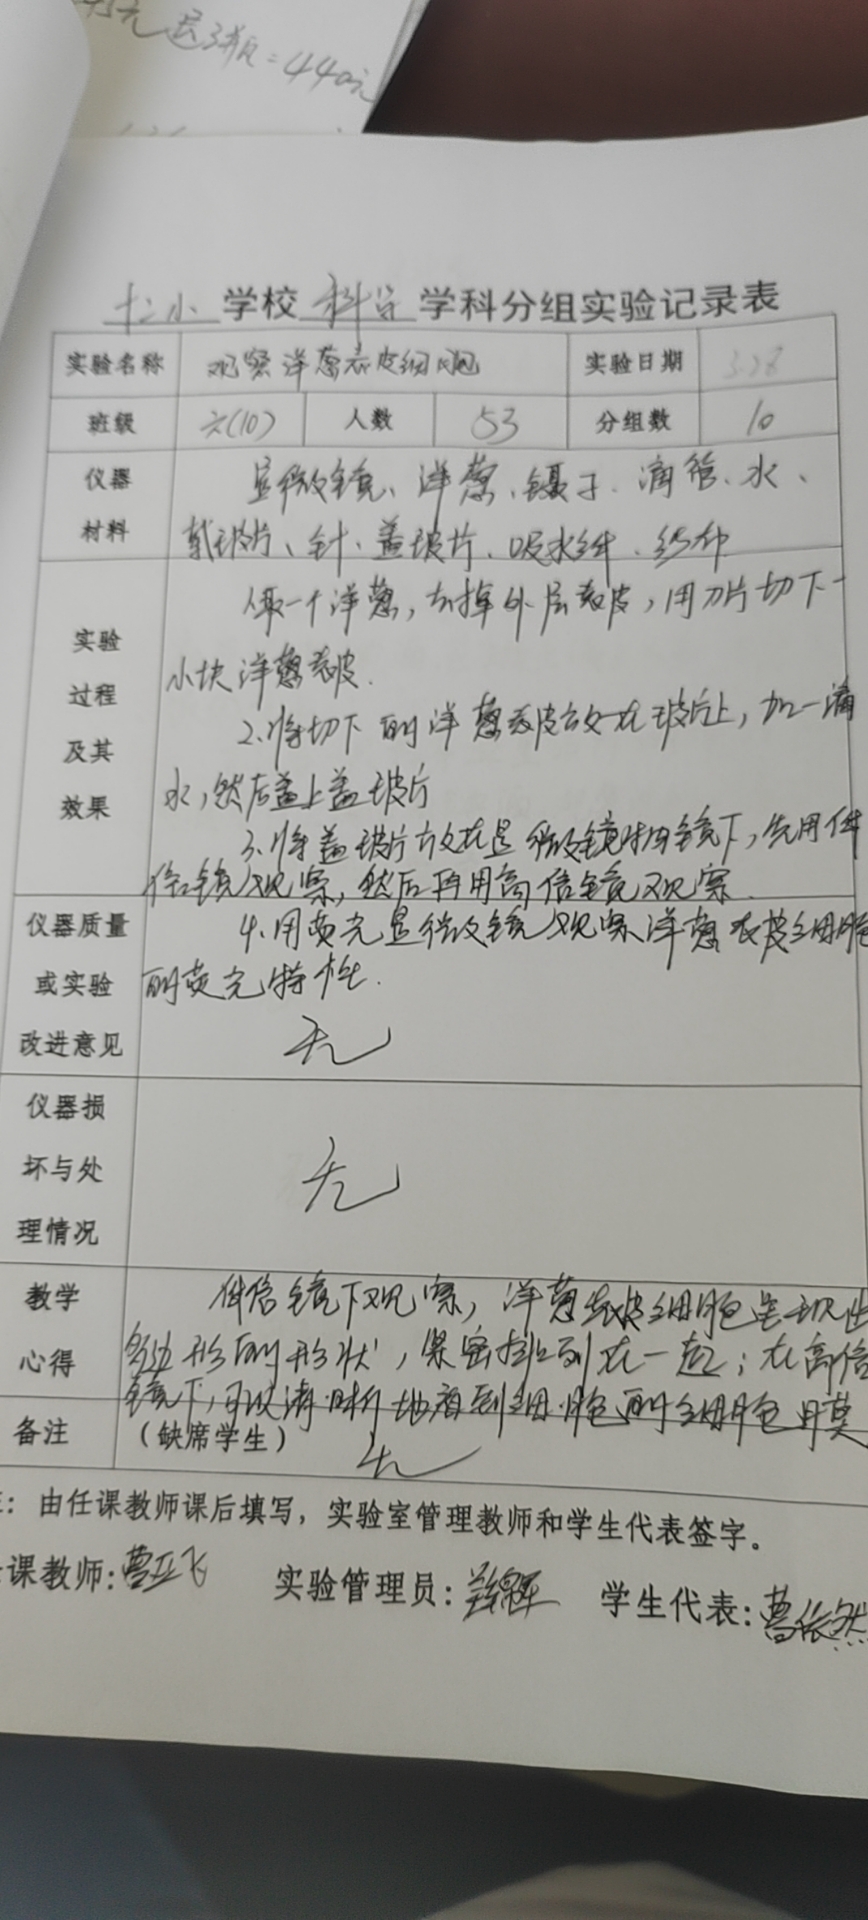 元 = 440元
十二小 学校 科学 学科分组实验记录表
实验名称 观察洋葱表皮细胞 实验日期 3.28
班级 六(10) 人数 53 分组数 10
仪器 显微镜、洋葱、镊子、滴管、水、
材料 载玻片、针、盖玻片、吸水纸、纱布
1.取一个洋葱,去掉外层表皮,用刀片切下一
实验
过程 小块洋葱表皮.
及其 2.将切下的洋葱表皮放在玻片上,加一滴
效果 水,然后盖上盖玻片
3.将盖玻片放在显微镜物镜下,先用低
倍镜观察,然后再用高倍镜观察.
仪器质量 4.用荧光显微镜观察洋葱表皮细胞
或实验 的荧光特性.
改进意见 无
仪器损
坏与处 无
理情况
教学 低倍镜下观察,洋葱表皮细胞呈现出
心得 多边形的形状,紧密排列在一起;在高倍
镜下,可以清晰地看到细胞的细胞膜
备注 (缺席学生) 无
:由任课教师课后填写,实验室管理教师和学生代表签字。
课教师:曹立飞 实验管理员: 学生代表:曹依然